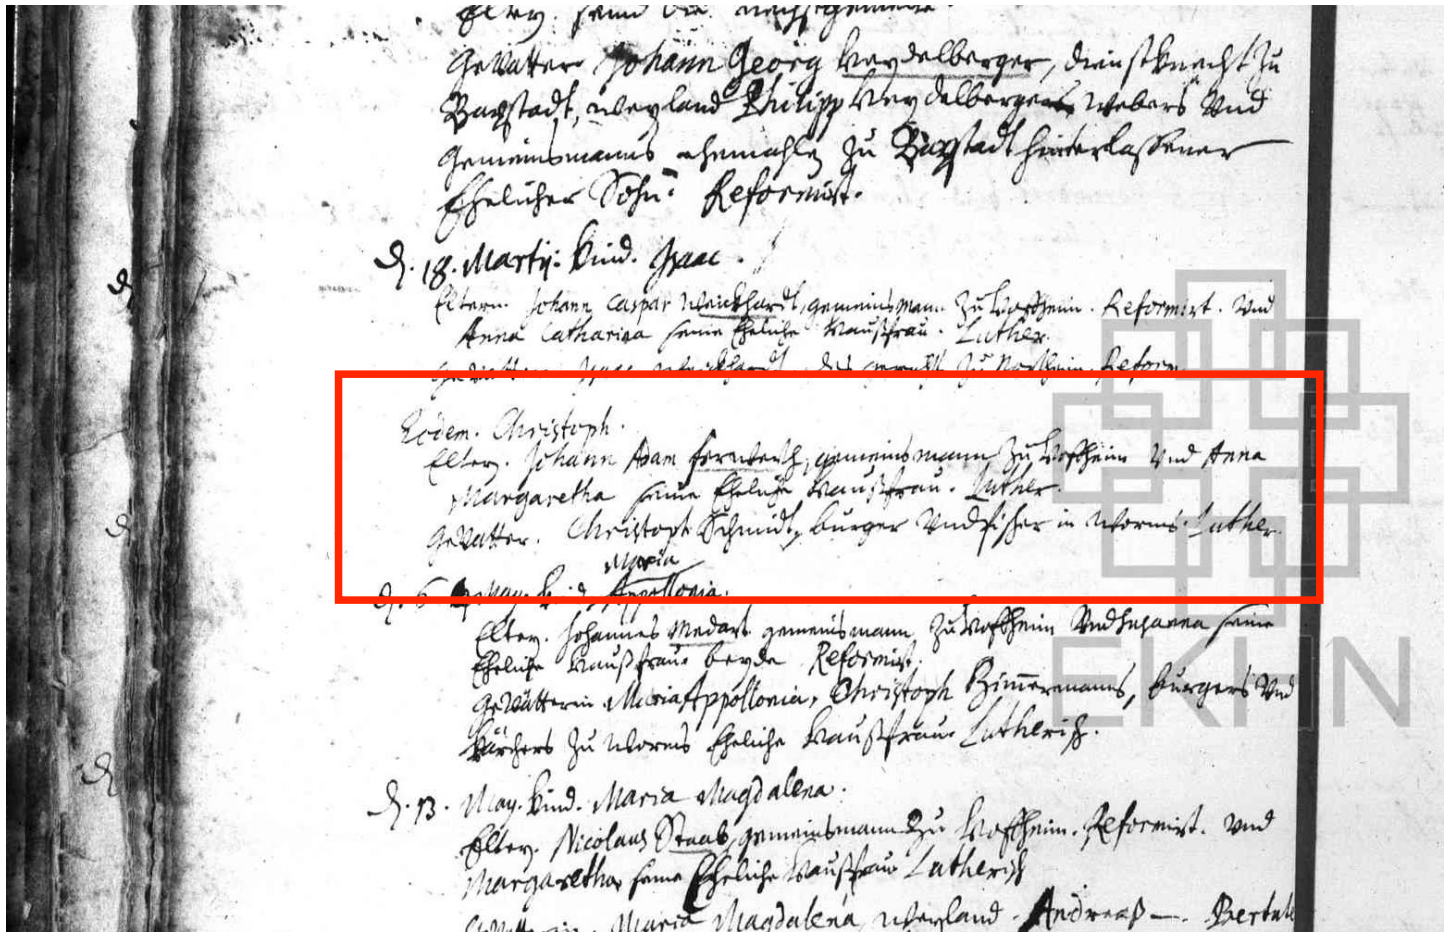 Gevatter Johann Georg Heydelberger, dienstknecht zu
weyland Philipp Heydelbergers Webers Und
gemeinsmanns ehemahls zu hinterlassener
Ehelicher Sohn. Reformirt.
D. 18. Martij. Kind. Isaac.
Eltern. Johann Caspar Weickhardt, gemeinsmann zu Hoffheim. Reformirt. Und
Anna Catharina seine Eheliche Haußfrau. Luther.
zu Hoffheim. Reform.
Eodem. Christoph.
Eltern. Johann Adam gemeinsmann zu Hoffheim Und Anna
Margaretha seine Eheliche Haußfrau. Luther.
Gevatter. Christoph Schmidt, burger Und fischer in Worms. Luther.
Maria
D. 6. May. Kind Appollonia.
Eltern. Johannes Medart gemeinsmann zu Hoffheim Und Susanna seine
Eheliche Haußfrau beyde Reformirt.
Gevatterin Maria Appollonia, Christoph Zimmermanns, burgers Und
zu Worms Eheliche Haußfrau Lutherisch.
D. 13. May. Kind. Maria Magdalena.
Eltern. Nicolaus Staab, gemeinsmann zu Hoffheim. Reformirt. Und
Margaretha seine Eheliche Haußfrau Lutherisch
Gevatterin. Maria Magdalena, weyland Andreaß
EKHN